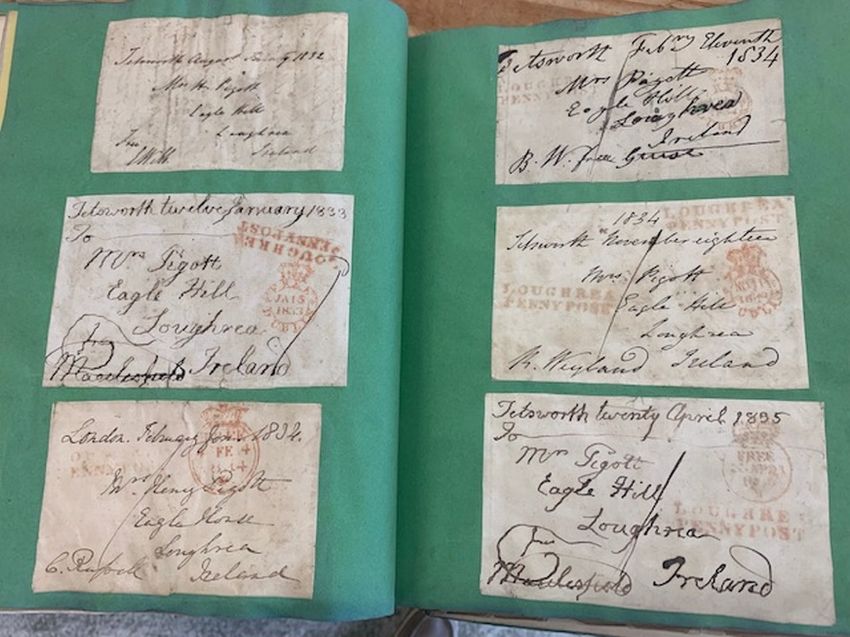 Tetsworth August 1832
Mrs Hy Pigott
Eagle Hill
Loughrea
Ireland
Free
Tetsworth twelve January 1833
To
Mrs Pigott
Eagle Hill
Loughrea
Ireland
free
Macclesfield
LOUGHREA
PENNYPOST
JA 15
1833
London February four 1834.
Mrs Henry Pigott
Eagle House
Loughrea
Ireland
C. Russell
PENNYPOST
FREE
FE 4
Tetsworth Febry Eleventh
1834
Mrs Pigott
Eagle Hill
Loughrea
Ireland
B. W.
LOUGHREA
PENNYPOST
1834
Tetsworth November eighteen
Mrs Pigott
Eagle Hill
Loughrea
Ireland
R. Weyland
LOUGHREA
PENNYPOST
LOUGHREA
PENNYPOST
Tetsworth twenty April 1835
To
Mrs Pigott
Eagle Hill
Loughrea
Ireland
free
Macclesfield
FREE
LOUGHRE
PENNYPOST